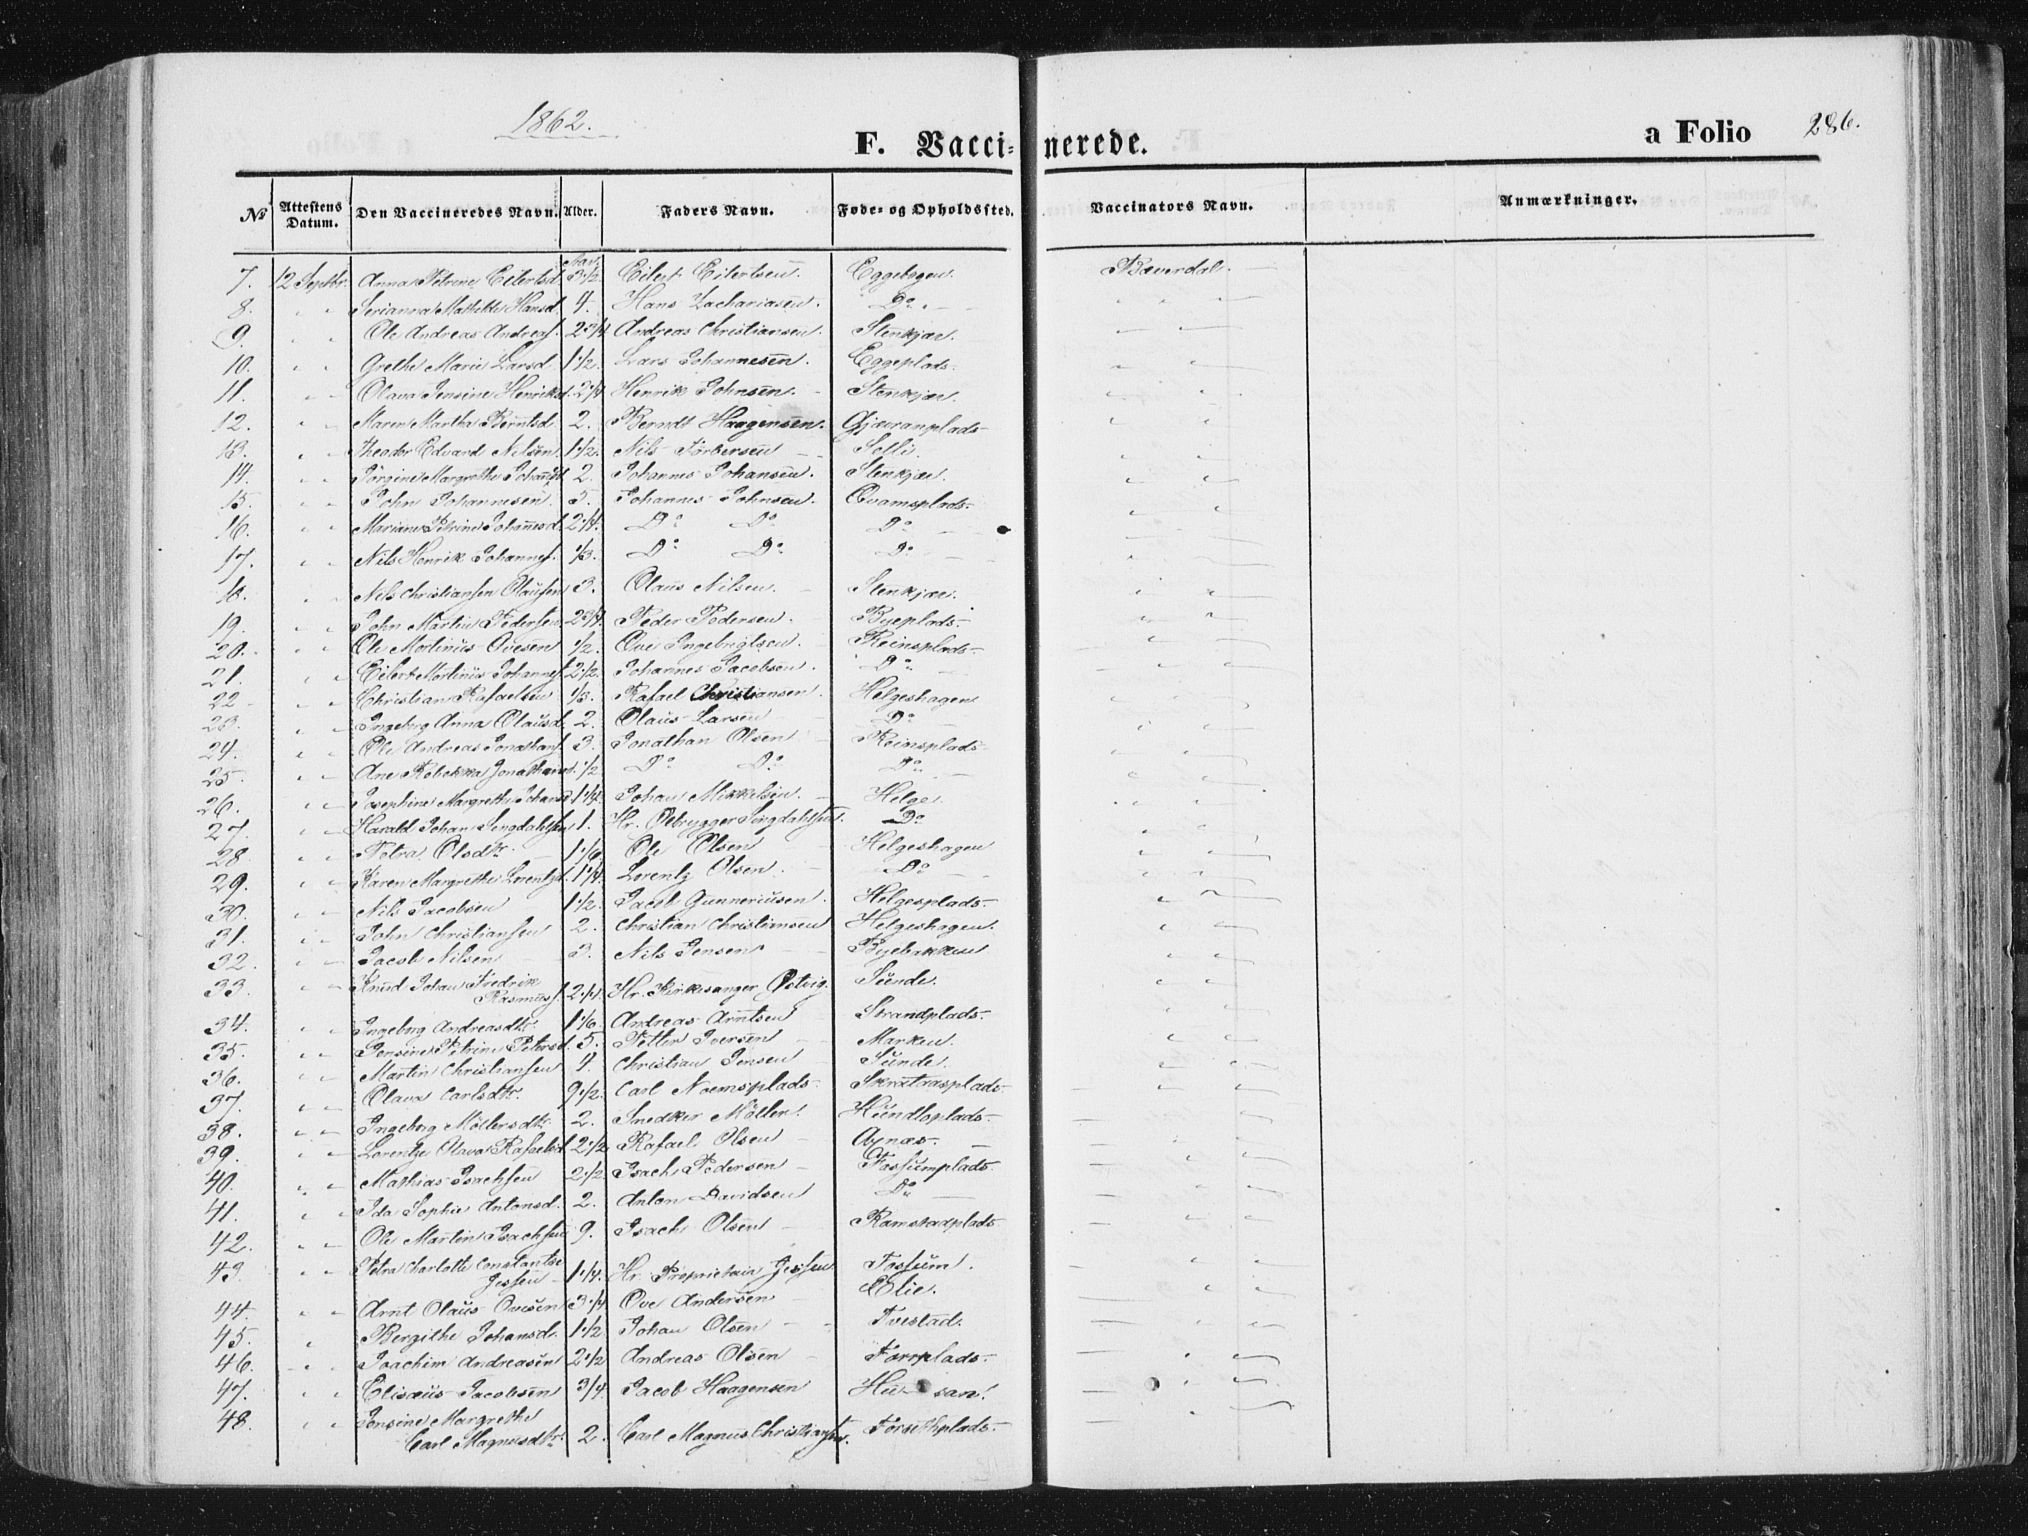 1862.
F. Vaccinerede.
a Folio 286.
No Attestens Datum. Den Vaccineredes Navn. Alder. Faders Navn. Føde- og Opholdssted. Vaccinators Navn. Anmærkninger.
7. 12 Septbr. Anna Petrine Eilertsd. Aar 3 1/2 Eilert Eilertsen. Eggebogen. Bæverdal.
8. " " Serianna Mathilde Hansd. 4. Hans Zachariasen. Do. " "
9. " " Ole Andreas Andreas. 2 3/4 Andreas Christiansen. Stenkjær.
10. " " Grethe Marie Larsd. 1 1/2. Lars Johannesen. Eggeplads.
11. " " Olava Jensine Henriksd. 2 1/4 Henrik Johnsen. Stenkjær.
12. " " Maren Martha Berntsd. 2. Berndt Haagensen. Gjæranplads
13. " " Theodor Edvard Nilsen. 1 1/2. Nils Torbersen Selli.
14. " " Jørgine Margrethe Johansd. 2. Johannes Johansen. Stenkjær.
15. " " John Johannesen. 3. Johannes Johnsen. Qvamsplads.
16. " " Mariane Petrine Johannesd. 2 1/4. Do Do Do
17. " " Nils Henrik Johannes. 1/3. Do Do Do
18. " " Nils Christiansen Olausen 3. Olaus Nilsen. Stenkjær.
19. " " John Martin Pedersen 2 3/4. Peder Pedersen. Byeplads.
20. " " Ole Martinus Ovesen 1/2. Ove Ingebrigtsen. Reinsplads.
21. " " Eilert Martinus Johannes. 2 1/2. Johannes Jacobsen. Do
22 " " Christian Rafaelsen 1/3. Rafael Christiansen. Helgeshagen
23. " " Ingeborg Anna Olausd. 2. Olaus Larsen Do
24. " " Ole Andreas Jonathans. 3. Jonathan Olsen Reinsplads
25. " " Ane Rebekka Jonathansd. 1/2 Do Do Do
26. " " Josephine Margrethe Johansd. 1 1/4. Johan Mikkelsen. Helge.
27. " " Harald Johan Sengdahlsen 1. Hr. Ølbrygger Sengdahlsen. Do
28. " " Petra Olsdtr. 1 1/6. Ole Olsen Helgeshagen
29. " " Karen Margrethe Lorentzd. 1 1/4. Lorentz Olsen. Do
30. " " Nils Jacobsen 1 1/2. Jacob Gunneriusen. Helgesplads.
31. " " John Christiansen 2. Christian Christiansen Helgeshagen.
32. " " Jacob Nilsen 3. Nils Jensen Byebakken
33. " " Knud Johan Fredrik
Rasmus. 2 1/4. Hr. Kirkesanger Østvig. Sunde.
34. " " Ingeborg Andreasdtr. 1 1/6. Andreas Arntsen Strandplads.
35. " " Jensine Petrine Petersd. 5. Petter Iversen Marken.
36. " " Martin Christiansen 4. Christian Jensen Sunde.
37. " " Olava Carlsdtr. 9 1/2. Carl Noemsplads. Skratrasplads
38. " " Ingeborg Möllersdtr. 2. Smedker Möller. Hundloplads.
39. " " Lorentze Olava Rafaelsd. 2 1/2 Rafael Olsen
40. " " Mathias Isachsen 2 1/2 Isach Pedersen Fossumplads.
41. " " Ida Sophie Antonsd. 2. Anton Davidsen Do
42. " " Ole Martin Isachsen 9. Isach Olsen Ramstadplads
43. " " Petra Charlotte Constantse
Jessen 1 1/4. Hr. Proprietair Jessen Fossum.
44. " " Arnt Olaus Ovesen 3 1/4 Ove Andersen Elie.
45. " Bergithe Johansd. 1 1/2 Johan Olsen Tvestad.
46. " " Joachim Andreasen 2 1/2 Andreas Olsen Forrplads.
47. " " Elisæus Jacobsen 3/4. Jacob Haagensen
48. " " Jensine Margrethe
Carl Magnusdtr. 2. Carl Magnus Christiansen. Forsethplads.